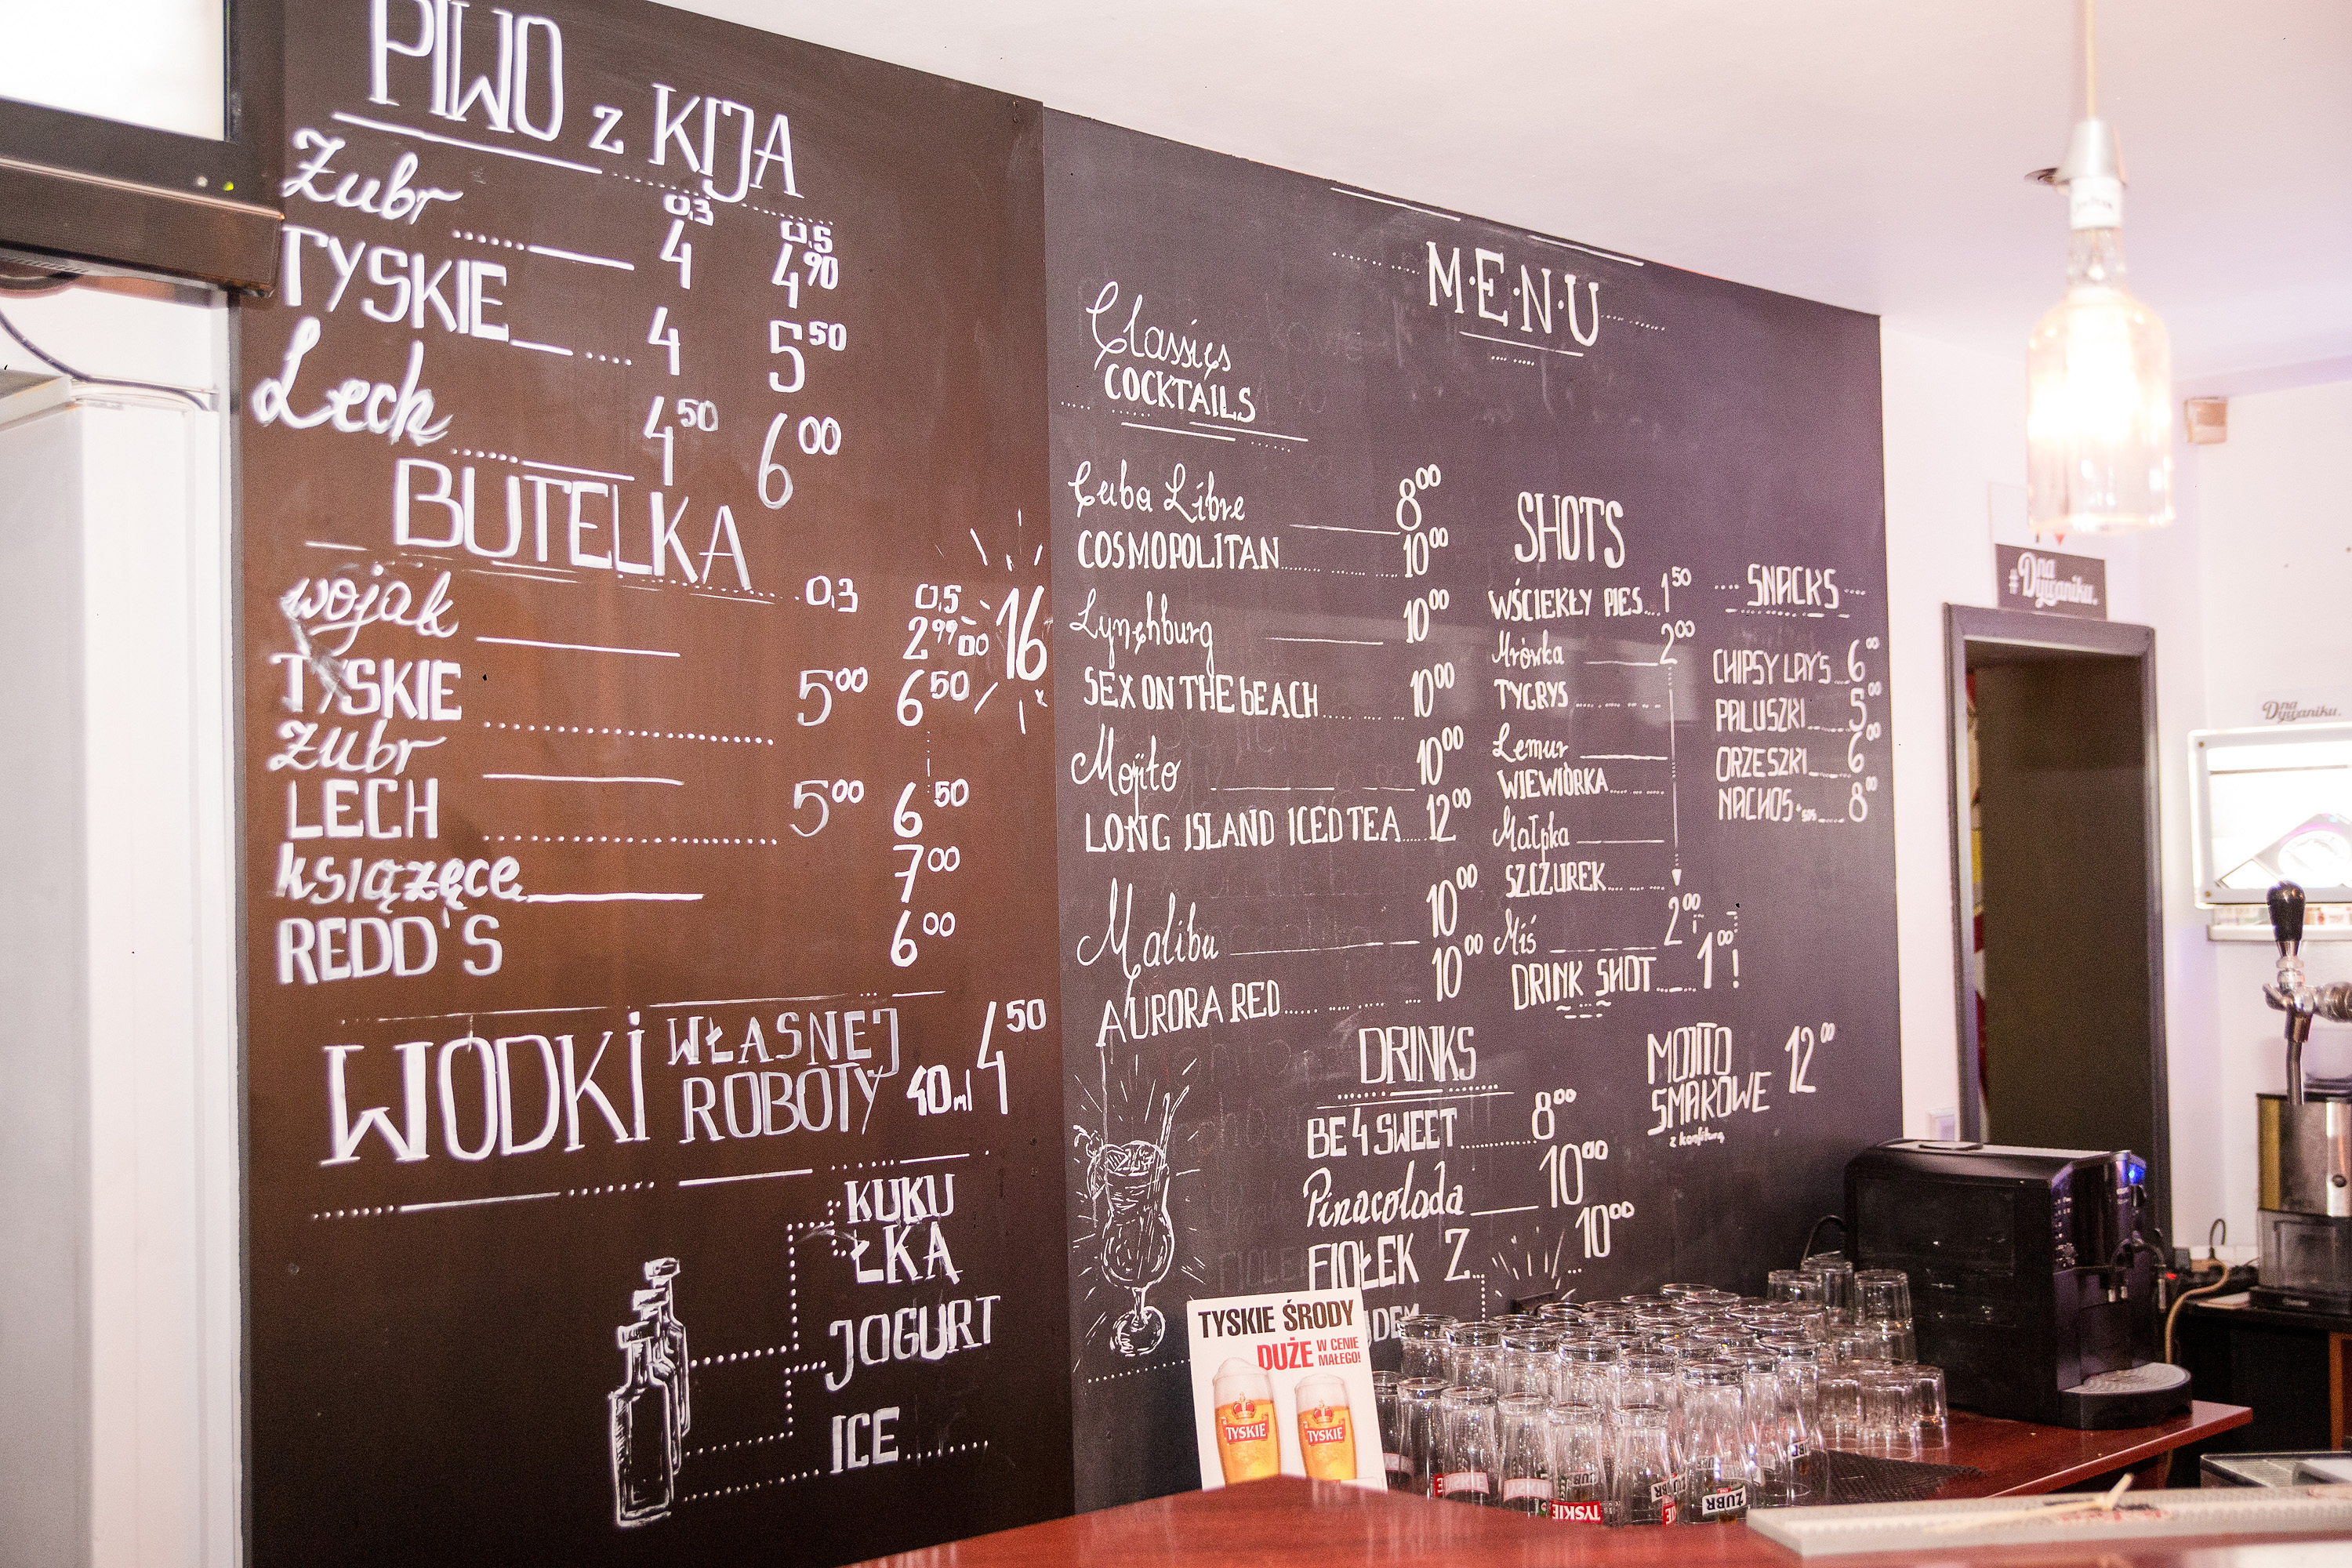 PIWO z KIJA
0.3 0.5
Żubr 4 4 90
TYSKIE 4 5 50
Lech 4 50 6 00
BUTELKA
0,3 0,5
wojak 2 99 DO 16
TYSKIE 5 00 6 50
Żubr
LECH 5 00 6 50
książęce 7 00
REDD'S 6 00
WÓDKI WŁASNEJ
ROBOTY 40 ml 4 50
KUKU
ŁKA
JOGURT
ICE
M·E·N·U
Classics
COCKTAILS
Cuba Libre 8 00
COSMOPOLITAN 10 00
Lynchburg 10 00
SEX ON THE bEACH 10 00
Mojito 10 00
LONG ISLAND ICED TEA 12 00
Malibu 10 00
AURORA RED 10 00
SHOTS
WŚCIEKŁY PIES 1 50
Mrówka 2 00
TYGRYS
Lemur
WIEWIÓRKA
Małpka
SZCZUREK
Miś 2 00
DRINK SHOT 1 00 !
SNACKS
CHIPSY LAY'S 6 00
PALUSZKI 5 00
ORZESZKI 6 00
NACHOS + sos 8 00
DRINKS
BE 4 SWEET 8 00
Pinacolada 10 00
FIOŁEK Z 10 00
MOJITO
SMAKOWE 12 00
z konfiturą
TYSKIE ŚRODY
DUŻE W CENIE
MAŁEGO!
TYSKIE TYSKIE
#na
Dywaniku.
na
Dywaniku.
TYSKIE
ŻUBR